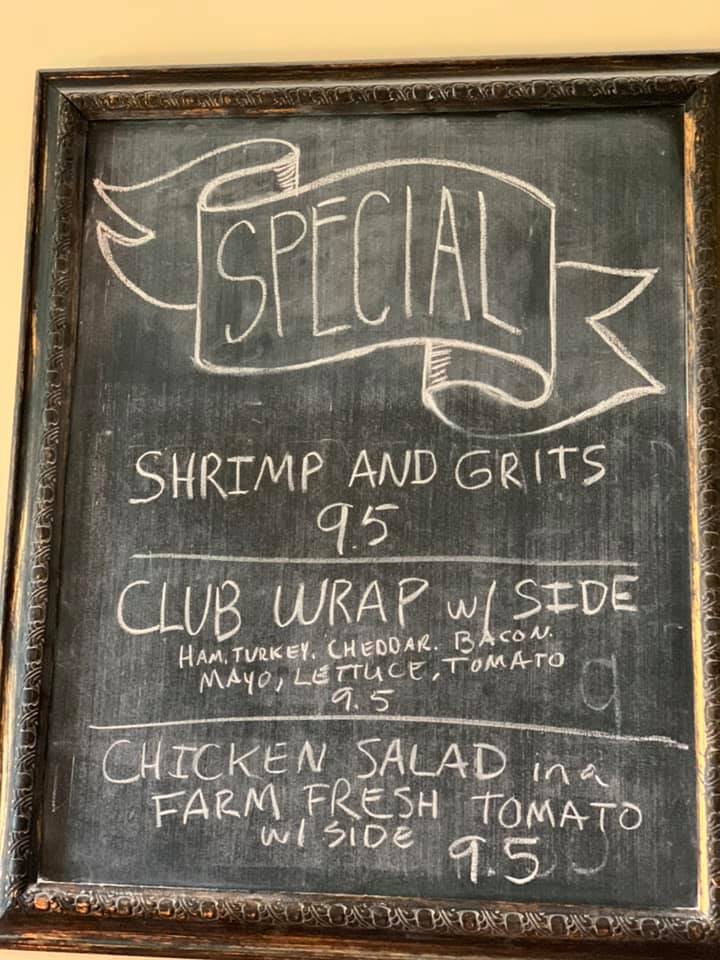 SPECIAL
SHRIMP AND GRITS
9.5
CLUB WRAP w/ SIDE
HAM, TURKEY, CHEDDAR, BACON,
MAYO, LETTUCE, TOMATO
9.5
CHICKEN SALAD in a
FARM FRESH TOMATO
w/ SIDE 9.5